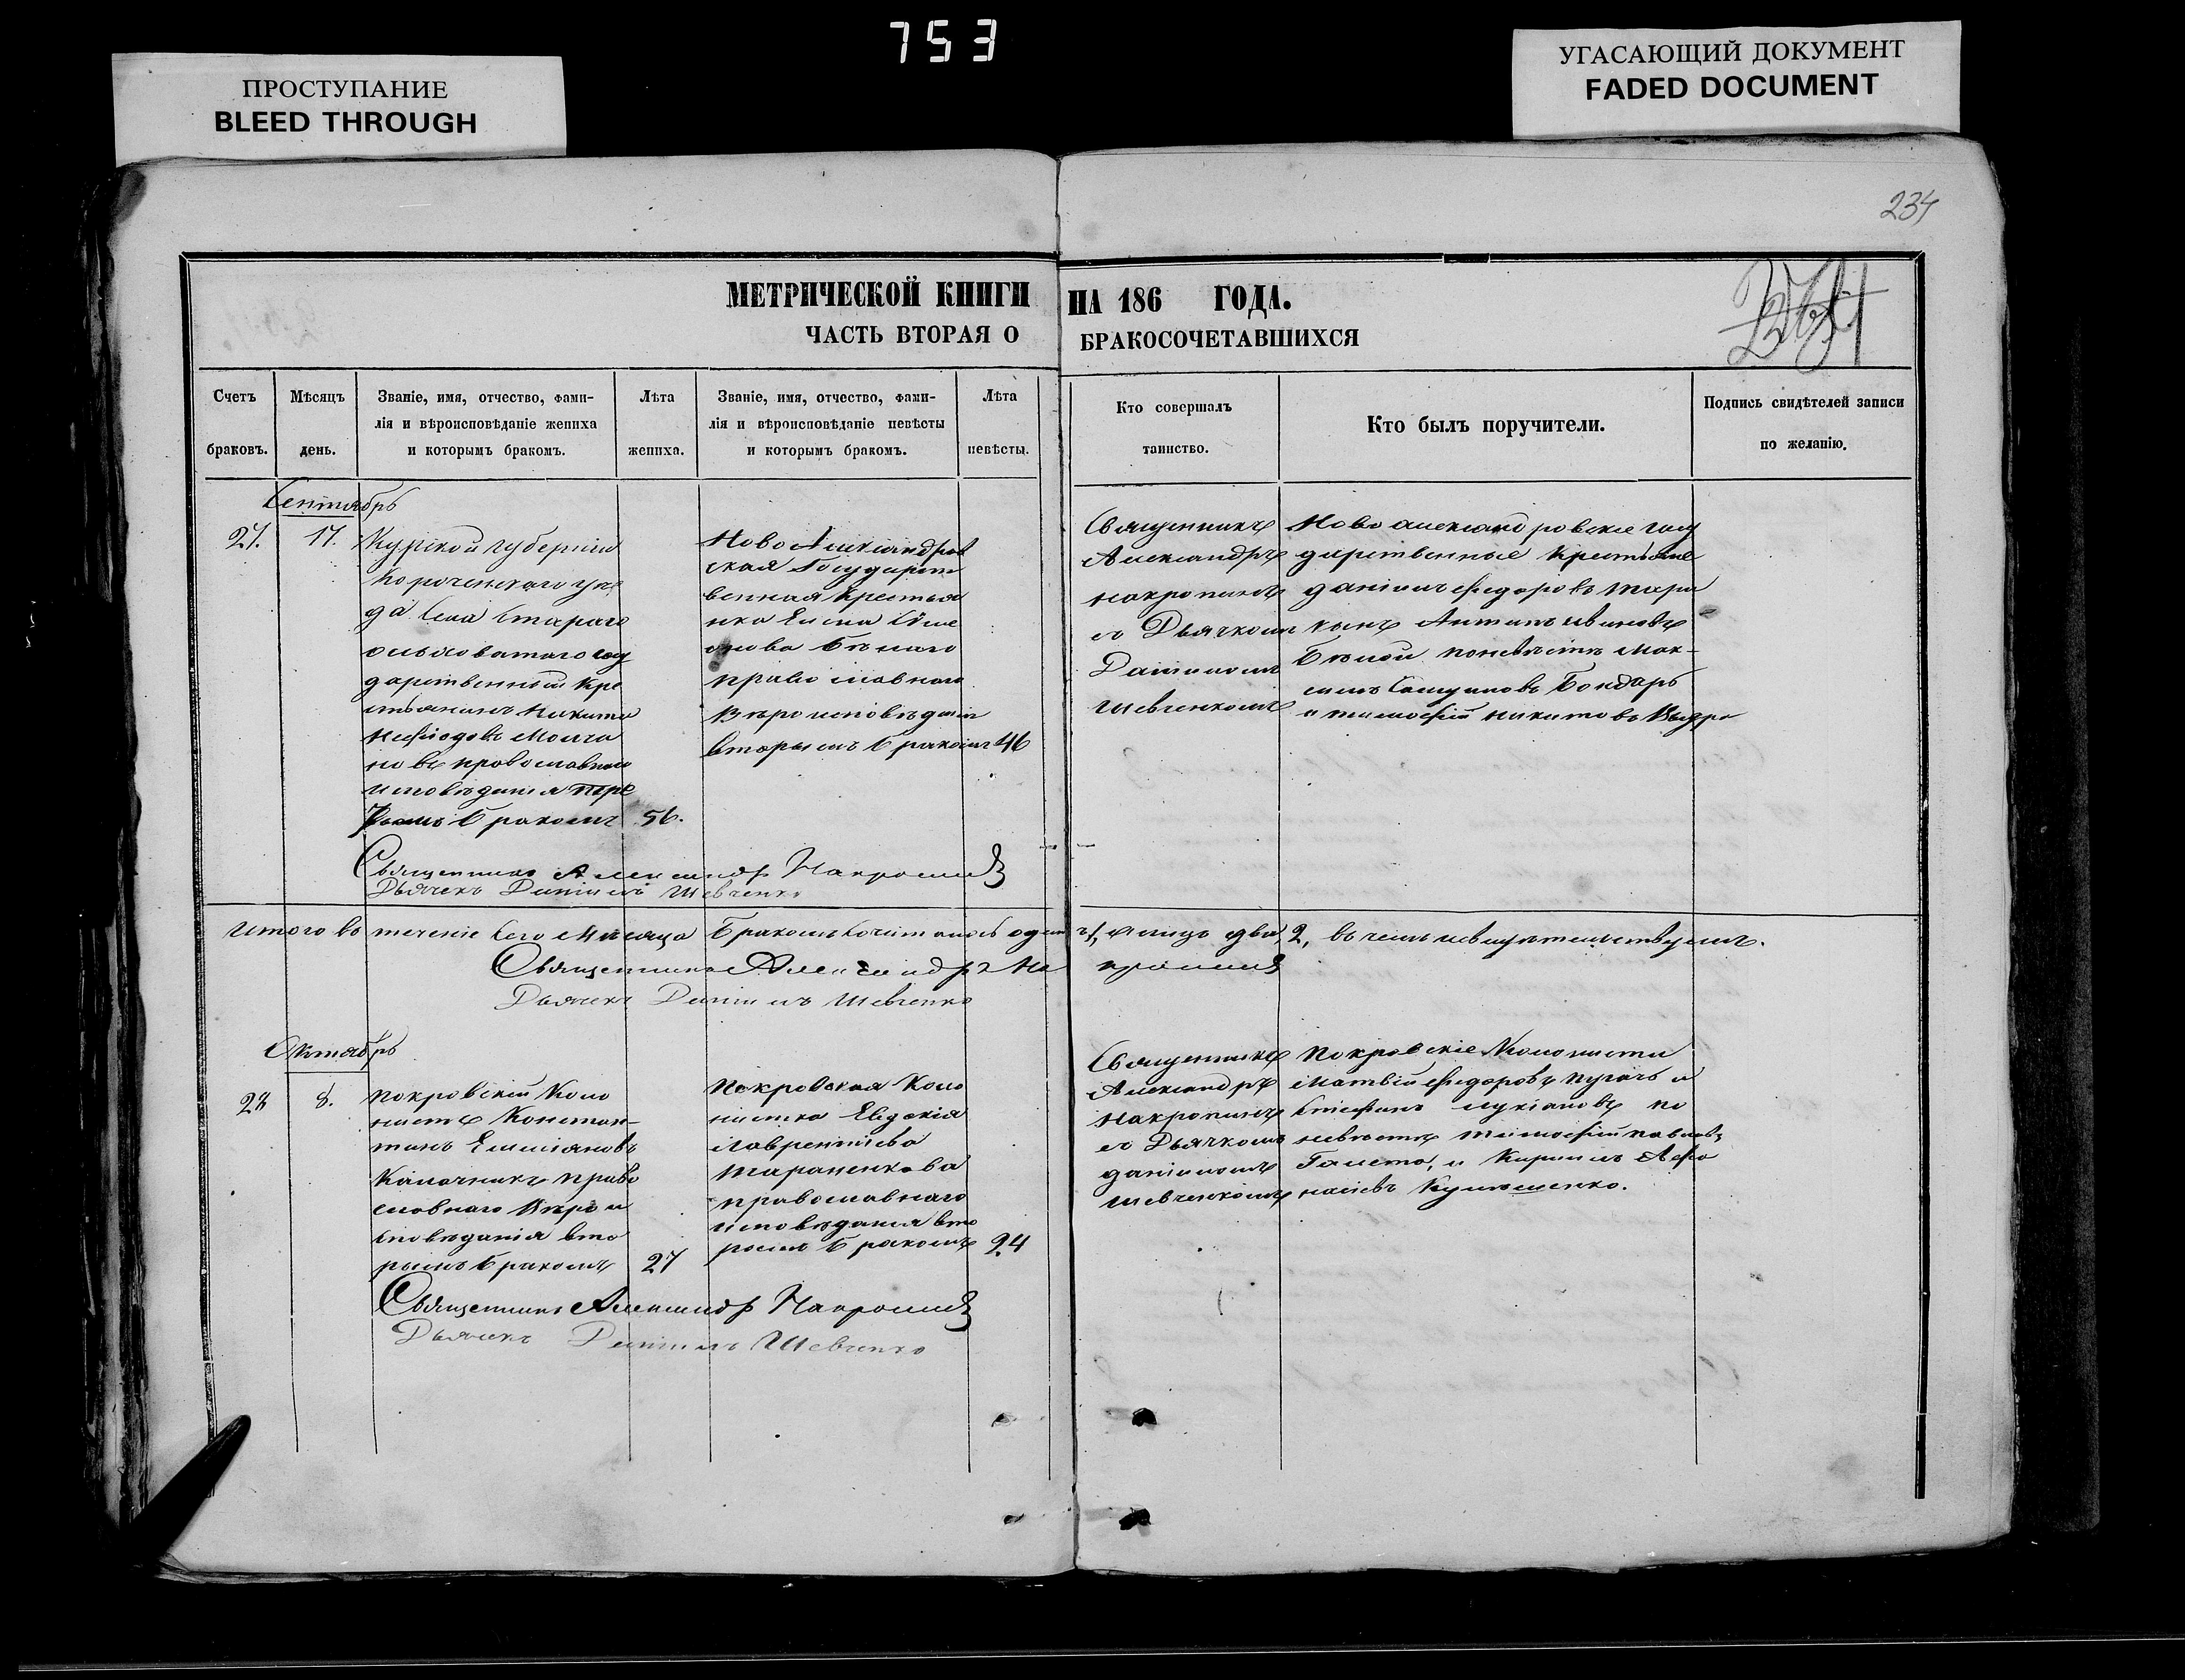 753
ПРОСТУПАНИЕ
BLEED THROUGH
УГАСАЮЩИЙ ДОКУМЕНТ
FADED DOCUMENT
234
МЕТРИЧЕСКОЙ КНИГИ НА 186 ГОДА.
ЧАСТЬ ВТОРАЯ О БРАКОСОЧЕТАВШИХСЯ
Счетъ
браковъ.
Мѣсяцъ
день.
Званіе, имя, отчество, фами-
лія и вѣроисповѣданіе жениха
и которымъ бракомъ.
Лѣта
жениха.
Званіе, имя, отчество, фами-
лія и вѣроисповѣданіе невѣсты
и которымъ бракомъ.
Лѣта
невѣсты.
Кто совершалъ
таинство.
Кто былъ поручители.
Подпись свидѣтелей записи
по желанію.
Сентябрь
27.
17.
Курской губерніи
Корочанскаго уѣз
да Села Стараго
государ
дарственный Кре
стьянинъ Никита
Нефіодовъ Молча
новъ православнаго
исповѣданія пер
вымъ бракомъ
56.
НовоАлександров
ская Государст
венная Крестья
нка Елена
Бѣлаго
православнаго
Вѣроисповѣданія
вторымъ бракомъ
46
Священникъ
Александръ
Накропинъ
съ Дьячкомъ
Даніиломъ
Шевченкомъ
Новоалександровскіе госу
дарственные Крестьяне
Даніилъ Федоровъ
Антипъ Ивановъ
Бѣлой по невѣстѣ Мак-
симъ Бондарь
и Тимофій Никитовъ
Священникъ Александр Накропинъ
Дьячекъ Даніилъ Шевченко
Итого въ теченіе сего Мѣсяца бракомъ сочеталось одинъ 1, а лицъ два, 2, въ чемъ и свидѣтельствуемъ.
Священникъ Александръ Накропинъ
Дьячекъ Даніилъ Шевченко
Октябрь
28
8.
Покровскій Коло
нистъ Констан-
тинъ Емиліановъ
Калачникъ право
славнаго Вѣрои
сповѣданія вто
рымъ бракомъ
27
Покровская Коло
нистка Евдокія
Лаврентіева
Тараненкова
православнаго
исповѣданія вто
рымъ бракомъ
24
Священникъ
Александръ
Накропинъ
съ Дьячкомъ
Даніиломъ
Шевченкомъ
Покровскіе Колонисти
Матвій Федоровъ Пугачъ и
Стефанъ Лукіановъ по
невѣстѣ Тимофій Павловъ
Галета, и Кирилъ Афа
насіевъ Кулѣшенко.
Священникъ Александръ Накропинъ
Дьячекъ Даніилъ Шевченко